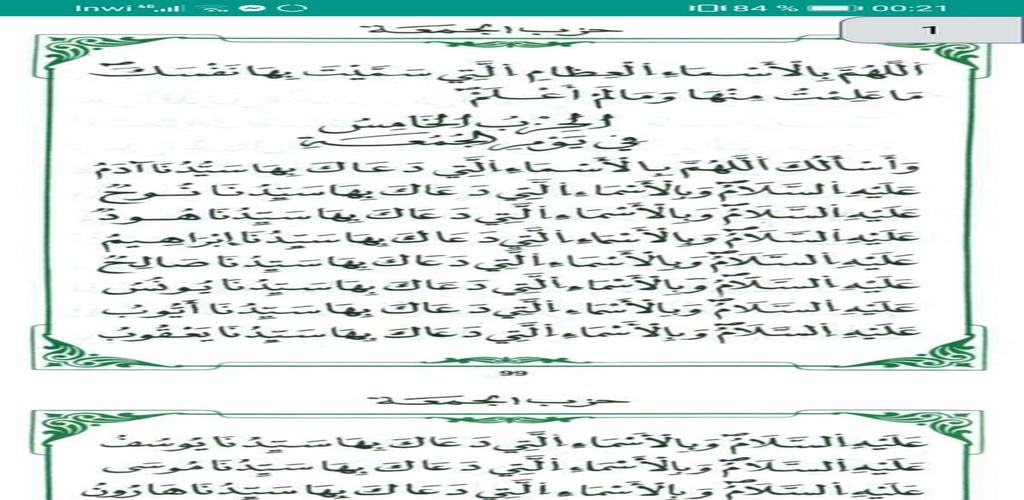 Inwi 4G 84 % 00:21
1
حزب الجمعة
اَللَّهُمَّ بِالْأَسْمَاءِ الْعِظَامِ الَّتِي سَمَّيْتَ بِهَا نَفْسَكَ
مَا عَلِمْتُ مِنْهَا وَمَا لَمْ أَعْلَمْ
الْحِزْبُ الْخَامِسُ
فِي يَوْمِ الْجُمُعَةِ
وَأَسْأَلُكَ اَللَّهُمَّ بِالْأَسْمَاءِ الَّتِي دَعَاكَ بِهَا سَيِّدُنَا آدَمُ
عَلَيْهِ السَّلَامُ وَبِالْأَسْمَاءِ الَّتِي دَعَاكَ بِهَا سَيِّدُنَا نُوحٌ
عَلَيْهِ السَّلَامُ وَبِالْأَسْمَاءِ الَّتِي دَعَاكَ بِهَا سَيِّدُنَا هُودٌ
عَلَيْهِ السَّلَامُ وَبِالْأَسْمَاءِ الَّتِي دَعَاكَ بِهَا سَيِّدُنَا إِبْرَاهِيمُ
عَلَيْهِ السَّلَامُ وَبِالْأَسْمَاءِ الَّتِي دَعَاكَ بِهَا سَيِّدُنَا صَالِحٌ
عَلَيْهِ السَّلَامُ وَبِالْأَسْمَاءِ الَّتِي دَعَاكَ بِهَا سَيِّدُنَا يُونُسُ
عَلَيْهِ السَّلَامُ وَبِالْأَسْمَاءِ الَّتِي دَعَاكَ بِهَا سَيِّدُنَا أَيُّوبُ
عَلَيْهِ السَّلَامُ وَبِالْأَسْمَاءِ الَّتِي دَعَاكَ بِهَا سَيِّدُنَا يَعْقُوبُ
99
حزب الجمعة
عَلَيْهِ السَّلَامُ وَبِالْأَسْمَاءِ الَّتِي دَعَاكَ بِهَا سَيِّدُنَا يُوسُفُ
عَلَيْهِ السَّلَامُ وَبِالْأَسْمَاءِ الَّتِي دَعَاكَ بِهَا سَيِّدُنَا مُوسَى
عَلَيْهِ السَّلَامُ وَبِالْأَسْمَاءِ الَّتِي دَعَاكَ بِهَا سَيِّدُنَا هَارُونُ